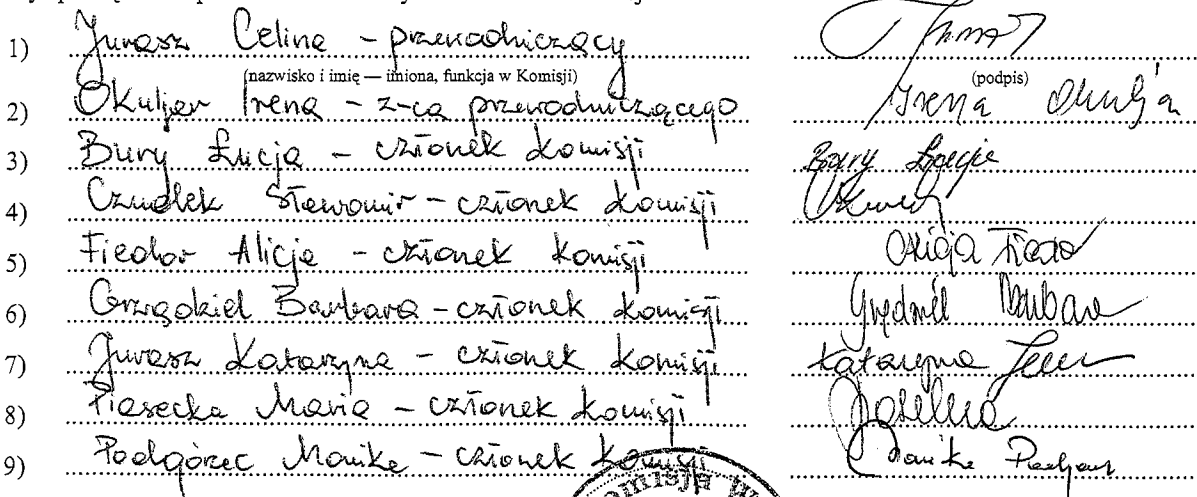 1) Jurasz Celina – przewodniczący
(nazwisko i imię — imiona, funkcja w Komisji) (podpis)
2) Okuljar Irena – z-ca przewodniczącego Irena
3) Bury Łucja – członek komisji Bury Łucja
4) Czudek Sławomir – członek komisji
5) Fiedor Alicja – członek komisji Alicja Fiedor
6) Grządziel Barbara – członek komisji Barbara
7) Jurasz Katarzyna – członek komisji Katarzyna
8) Piasecka Maria – członek komisji
9) Podgórzec Monika – członek komisji Monika
omisja W